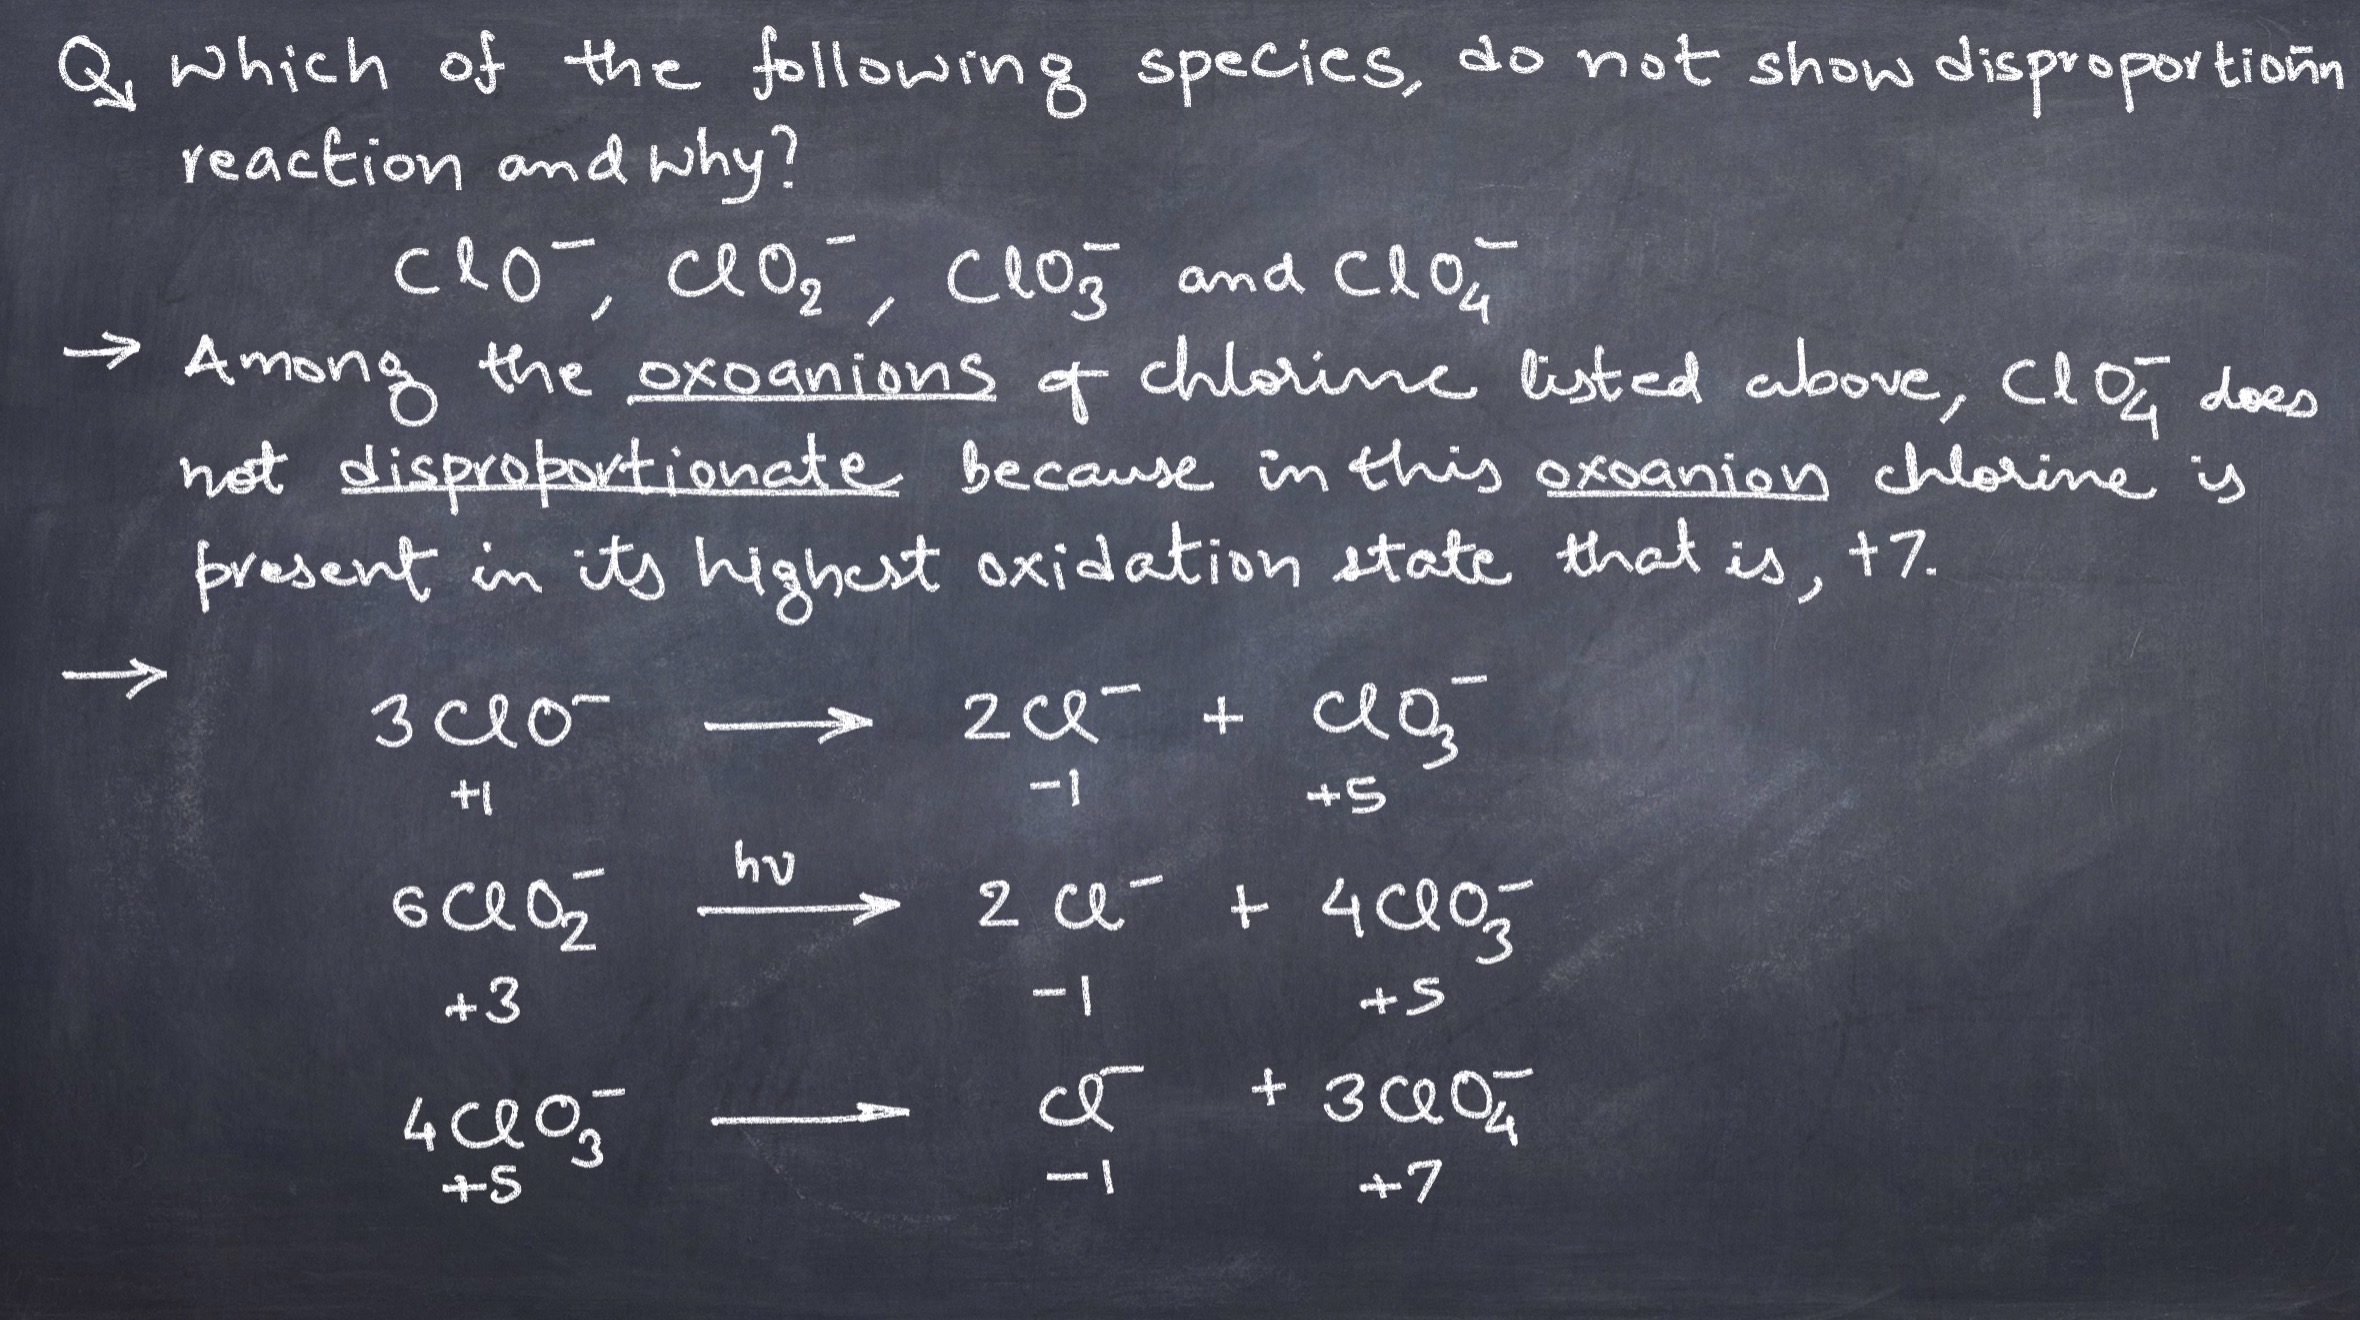 Q, Which of the following species, do not show disproportionn
reaction and why?
ClO⁻, ClO₂⁻, ClO₃⁻ and ClO₄⁻
→ Among the oxoanions of chlorine listed above, ClO₄⁻ does
not disproportionate because in this oxoanion chlorine is
present in its highest oxidation state that is, +7.
→
3ClO⁻ ⟶ 2Cl⁻ + ClO₃⁻
+1 -1 +5
hν
6ClO₂⁻ ⟶ 2Cl⁻ + 4ClO₃⁻
+3 -1 +5
4ClO₃⁻ ⟶ Cl⁻ + 3ClO₄⁻
+5 -1 +7